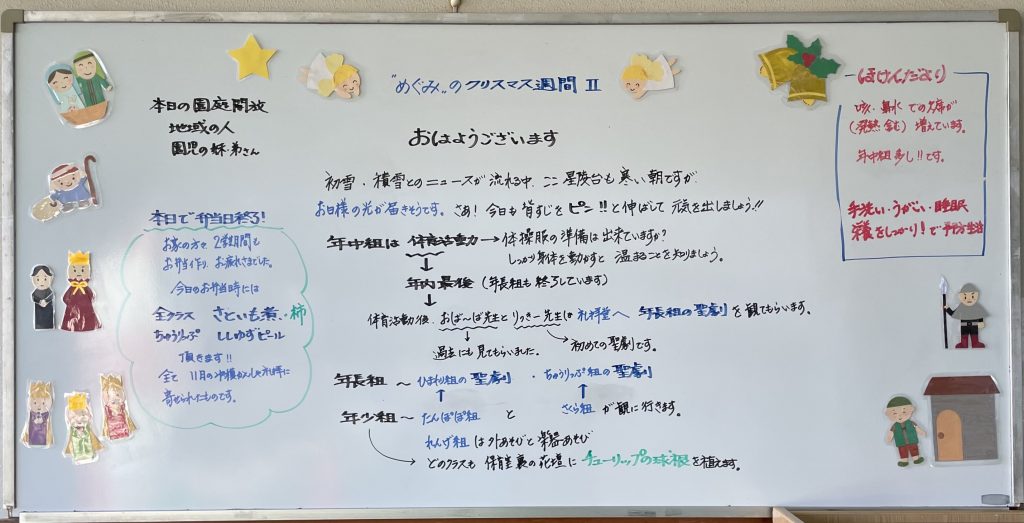 "めぐみ"のクリスマス週間 II
本日の園庭開放
地域の人
園児の妹・弟さん
おはようございます
初雪・積雪とのニュースが流れる中、ここ星陵台も寒い朝ですが
お日様の光が届きそうです。さあ!今日も背すじをピン!!と伸ばして元気を出しましょう!!
年中組は 体育活動→体操服の準備は出来ていますか?
しっかり身体を動かすと温まることを知りましょう。
年内最後(年長組も終了しています)
体育活動後、おば〜ば先生とりっきー先生は礼拝堂へ 年長組の聖劇を観てもらいます。
過去にも見てもらいました。
初めての聖劇です。
年長組〜ひまわり組の聖劇・ちゅうりっぷ組の聖劇
年少組〜たんぽぽ組 と さくら組 が観に行きます。
れんげ組 は外あそびと楽器あそび
どのクラスも 保育室裏の花壇に チューリップの球根 を植えます。
本日で弁当日終了!
お家の方々 2週間も
お弁当作り、お疲れさまでした。
今日のお弁当時には
全クラス さといも煮・柿
ちゅうりっぷ ししゆずピール
頂きます!!
全て 11月の
寄せられたものです。
ほけんだより
咳・鼻水 での欠席が
(発熱含む) 増えています。
年中組多し!!です。
手洗い・うがい・睡眠
栄養をしっかり!で予防生活